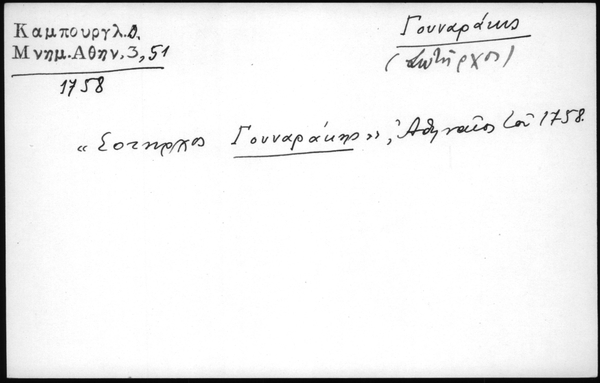 Καμπουργλ.Δ.
Μνημ.Αθην.3,51
1758
Γουναράκης
(Σωτήρχος)
«Σοτηρχος Γουναράκης», Ἀθηναῖος τοῦ 1758.